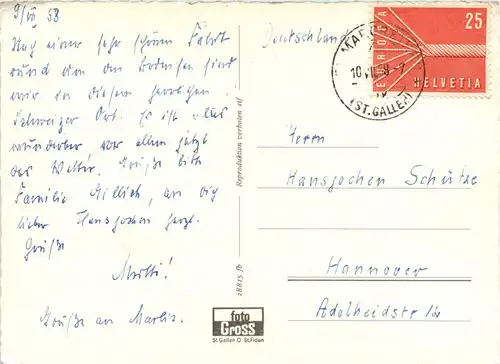 9/VII 58
Nach einer sehr schönen Fahrt
rund um den Bodensee sind
wir in diesem herrlichen
Schweizer Ort. Es ist alles
wunderbar vor allem jetzt
das Wetter. Grüße bitte
Familie Millich, an dich
lieber Hansjochen herzl.
Grüße
Mutti!
Grüße an Marlis.
Reproduktion verboten
18815 fb
foto
Gross
St.Gallen O' St.Fiden
Deutschland
(ST. GALLEN)
EUROPA
25
HELVETIA
Herrn
Hansjochen Schütze
Hannover
Adelheidstr.